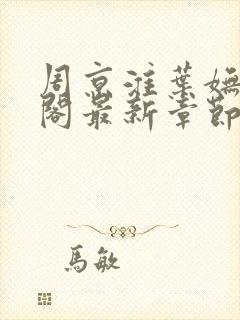 周京淮葉嫵
閣最新章節
馬敏